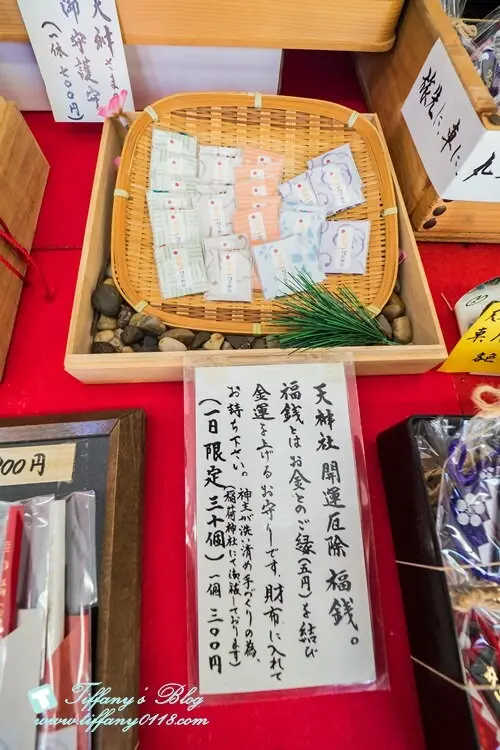 天神さまの
御守護守
(一体 七〇〇円)
旅先に
車に
天神社 開運厄除 福銭。
福銭とはお金とのご縁(五円)を結び
金運を上げるお守りです。財布に入れて
お持ち下さい。
神主が洗い清め手づくりの為、
(稲荷神社にて御祓しております)
(一日限定 三十個) 一個 三〇〇円
00円
Tiffany's Blog
www.tiffany0118.com